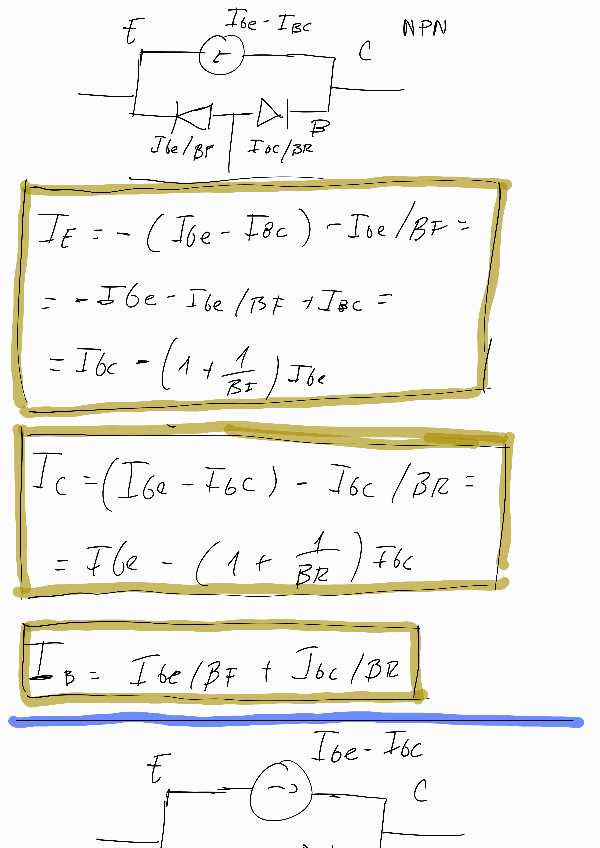 Ibe - IBC
E
C
NPN
B
Ibe/BF
Ibc/BR
IE = - (Ibe - IBC) - Ibe/BF =
= - Ibe - Ibe/BF + IBC =
= Ibc - (1 + 1/BF) Ibe
IC = (Ibe - Ibc) - Ibc/BR =
= Ibe - (1 + 1/BR) Ibc
IB = Ibe/BF + Ibc/BR
Ibe - Ibc
E
C